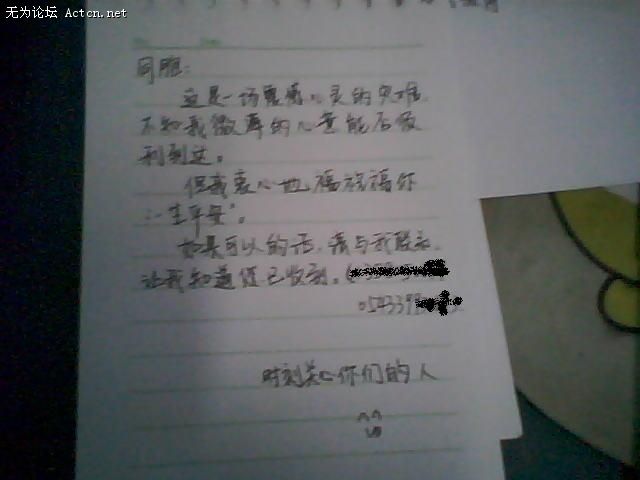 无为论坛 Actcn.net
同胞:
这是一场震撼心灵的灾难,
不知我微薄的心意能否顺
利到达。
但我衷心地福祝福你
:“一生平安”。
如果可以的话,请与我联系,
让我知道信已收到。(
0543399
时刻关心你们的人